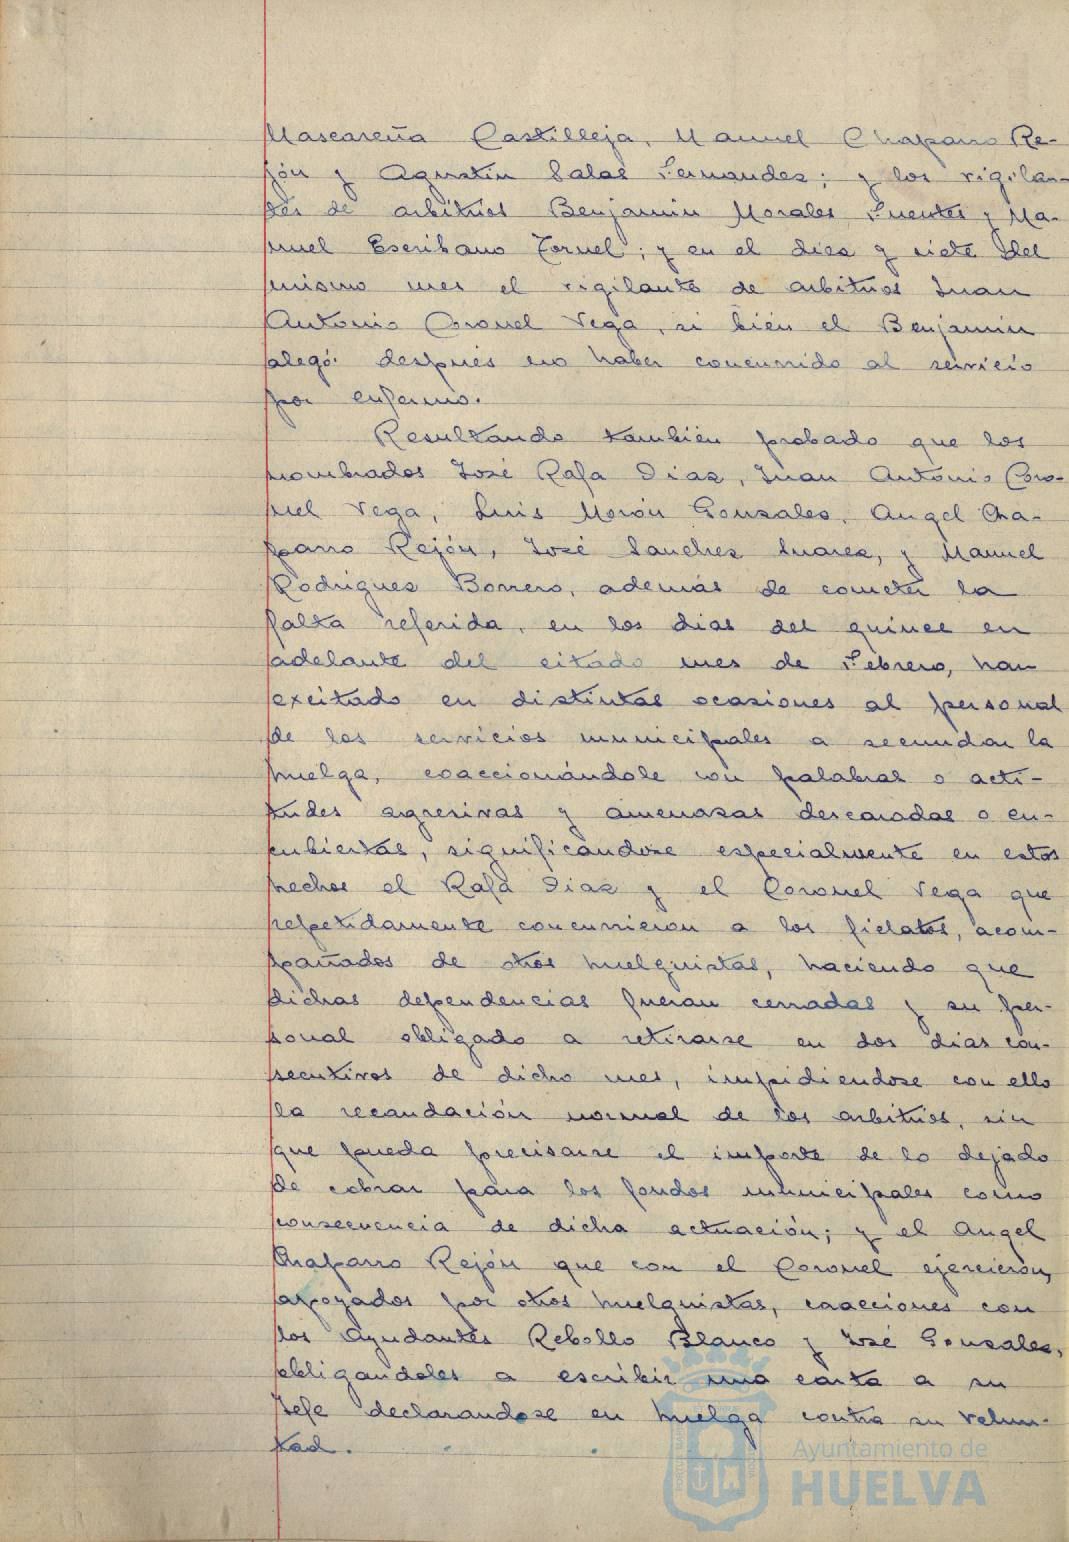 Mascareña Castilleja, Manuel Chaparro Re-
jón y Agustín Salas Fernandez; y los vigilan-
tes de arbitrios Benjamin Morales Fuentes y Ma-
nuel Escribano Tornel; y en el diez y siete del
mismo mes el vigilante de arbitrios Juan
Antonio Coronel Vega, si bién el Benjamin
alegó despues no haber concurrido al servicio
por enfermo.
Resultando también probado que los
nombrados José Rafa Diaz, Juan Antonio Coro-
nel Vega, Luis Morón Gonzalez, Angel Cha-
parro Rejón, José Sanchez Suarez, y Manuel
Rodriguez Borrero, además de cometer la
falta referida, en los dias del quince en
adelante del citado mes de Febrero, han
excitado en distintas ocasiones al personal
de los servicios municipales a secundar la
huelga, coaccionándole con palabras o acti-
tudes agresivas y amenazas descaradas o en-
cubiertas, significandose especialmente en estos
hechos el Rafa Diaz y el Coronel Vega que
repetidamente concurrieron a los fielatos, acom-
pañados de otros huelguistas, haciendo que
dichas dependencias fueran cerradas y su per-
sonal obligado a retirarse en dos dias con-
secutivos de dicho mes, impidiendose con ello
la recaudación normal de los arbitrios, sin
que pueda precisarse el importe de lo dejado
de cobrar para los fondos municipales como
consecuencia de dicha actuación; y el Angel
Chaparro Rejón que con el Coronel ejercieron,
apoyados por otros huelguistas, coacciones con
los Ayudantes Rebollo Blanco y José Gonzalez,
obligandoles a escribir una carta a su
Jefe declarandose en huelga contra su volun-
tad.
Ayuntamiento de
HUELVA